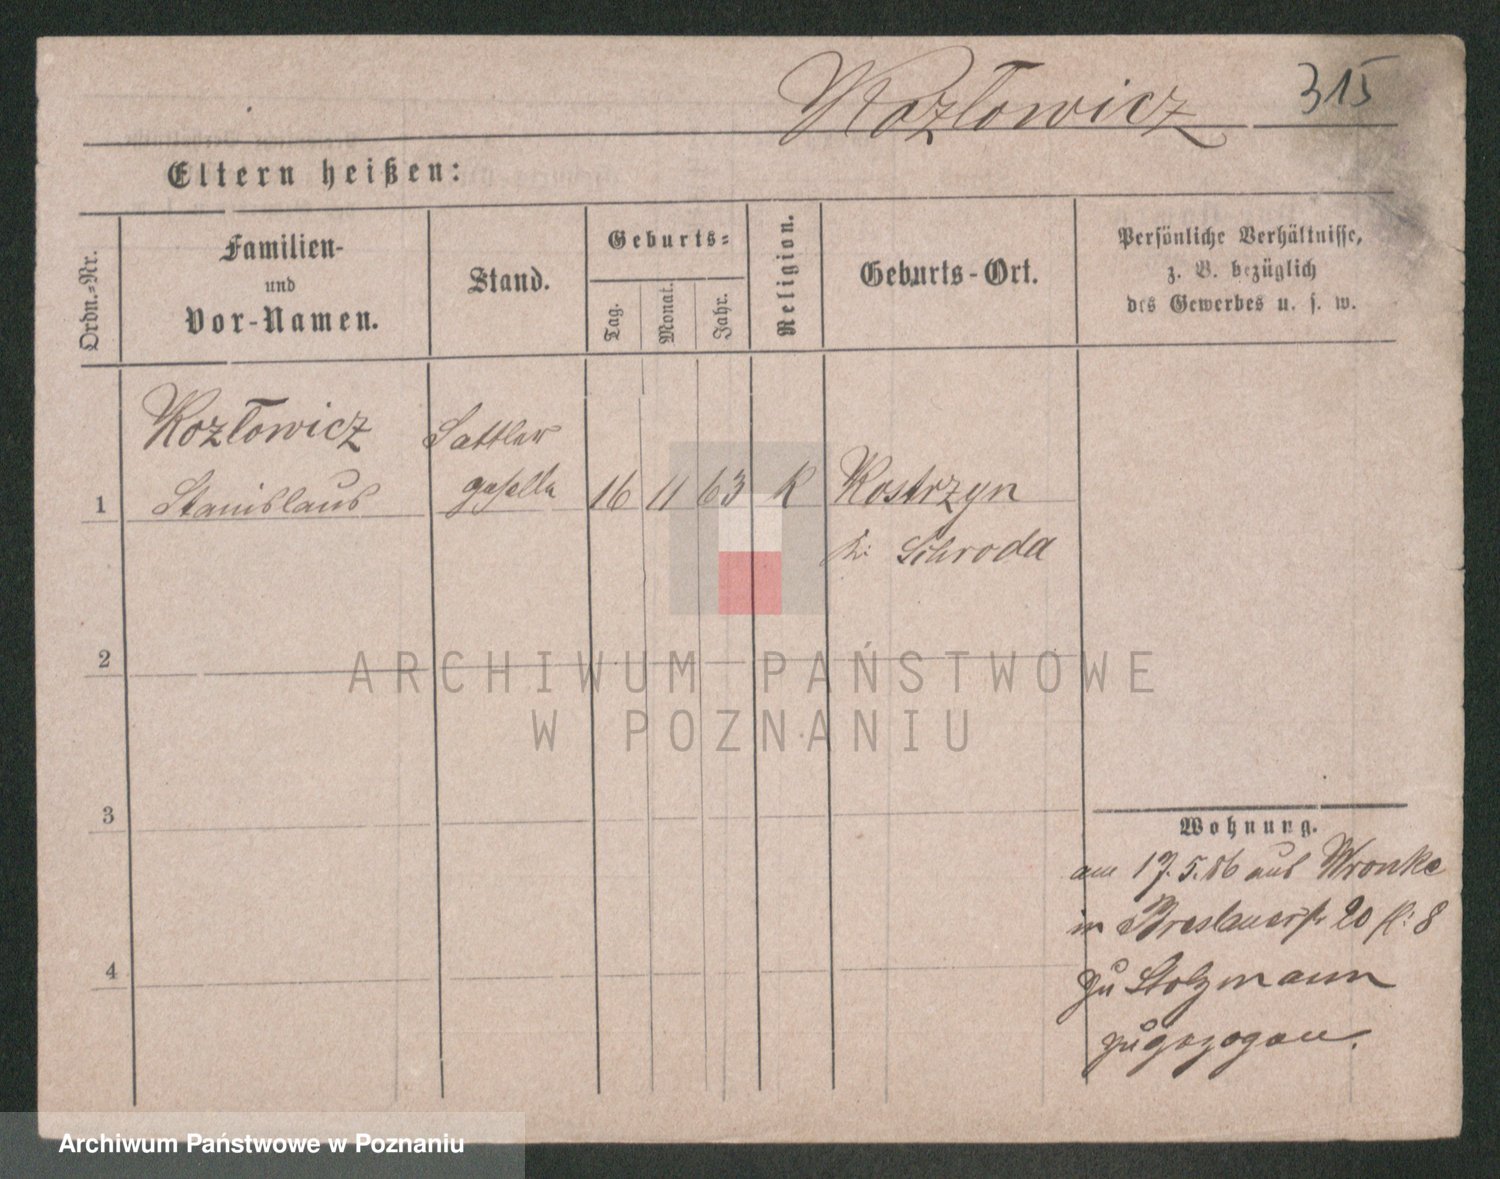 Kozłowicz 315
Eltern heißen:
Ordn.-Nr.
Familien-
und
Vor-Namen.
Stand.
Geburts-
Tag.
Monat.
Jahr.
Religion.
Geburts-Ort.
Persönliche Verhältnisse,
z. B. bezüglich
des Gewerbes u. s. w.
Kozłowicz Sattler
1 Stanislaus geselle 16 11 63 K Kostrzyn
Kr: Schroda
2
3
4
Wohnung.
am 17.5.86 aus Wronke
in Breslauerstr 20 bei 8
zu Stolzmann
zugezogen.
ARCHIWUM PAŃSTWOWE
W POZNANIU
Archiwum Państwowe w Poznaniu